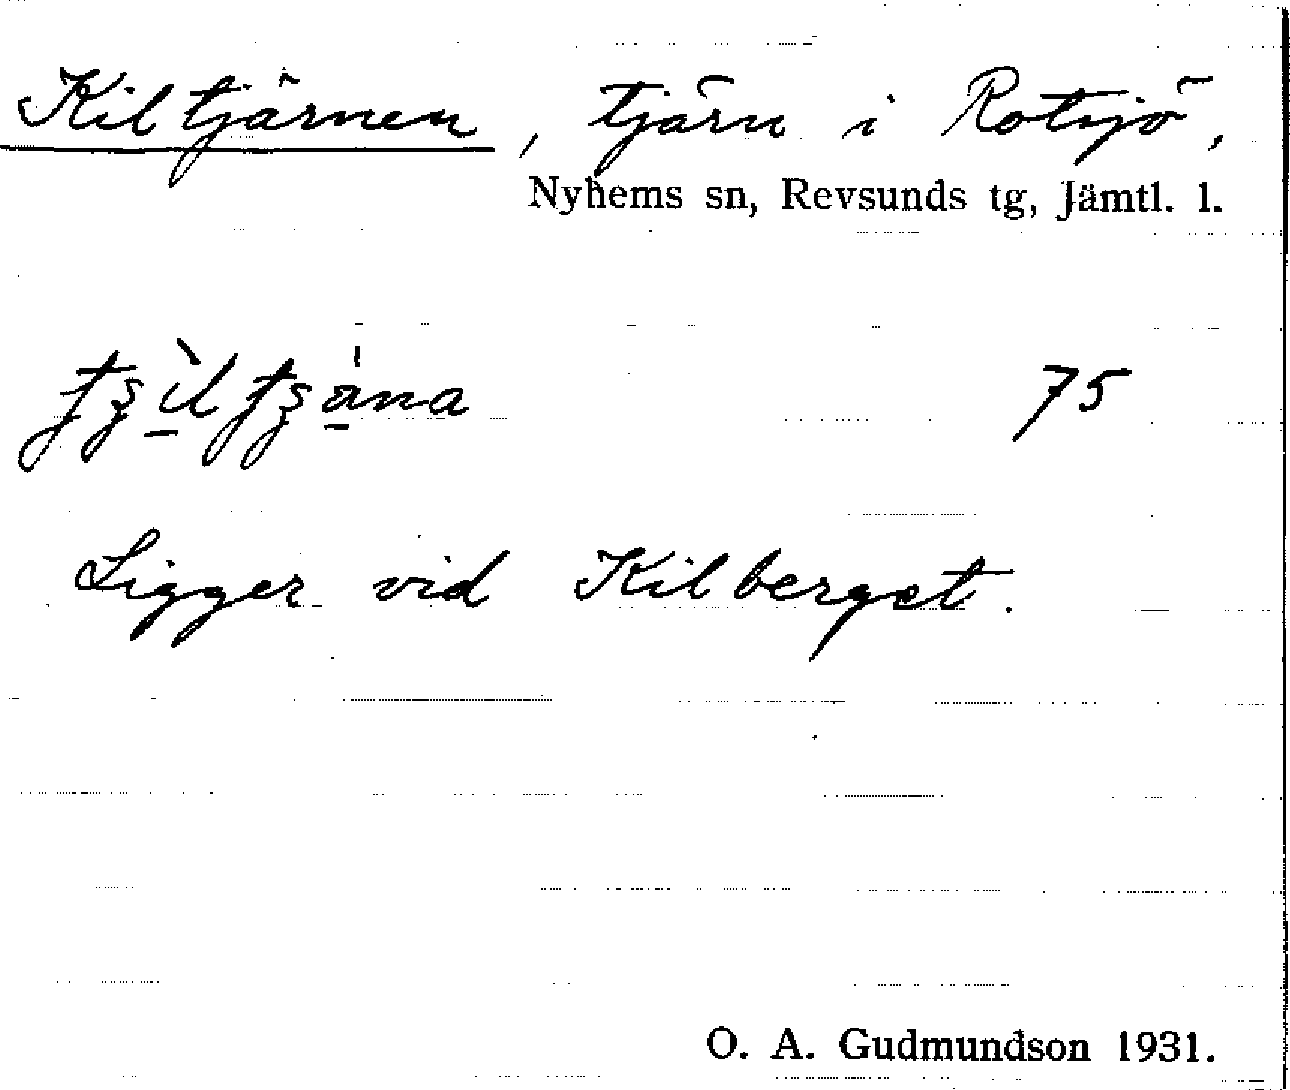 Kiltjärnen, tjärn i Rotsjö,
Nyhems sn, Revsunds tg, Jämtl. l.
75
Ligger vid Kilberget.
O. A. Gudmundson 1931.